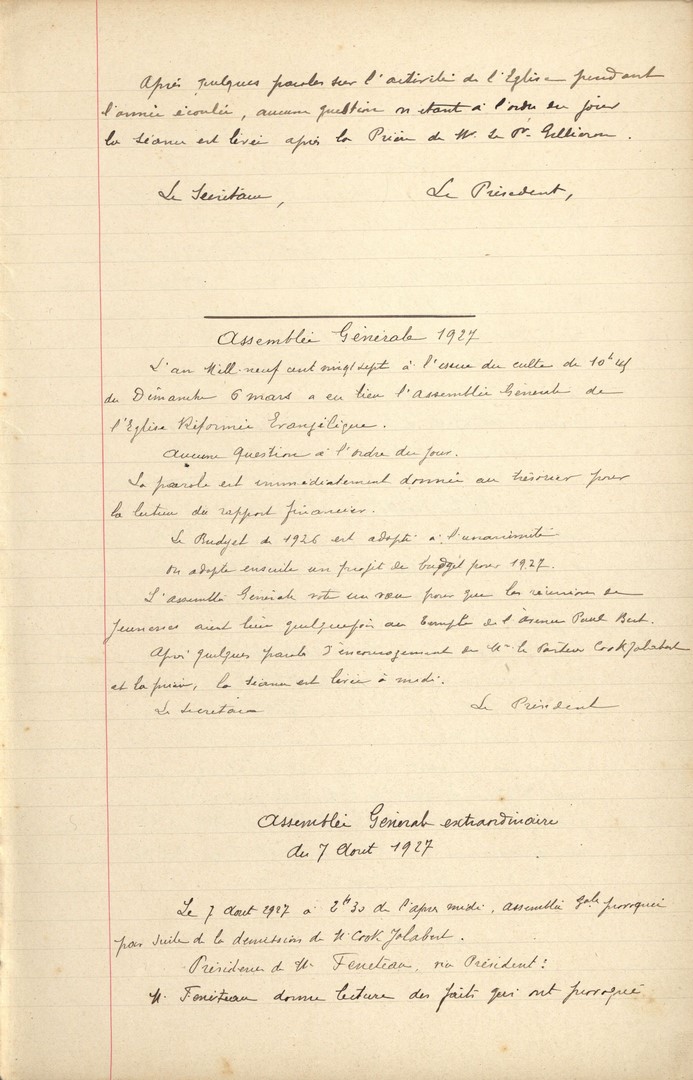 Après quelques paroles sur l'activité de l'Eglise pendant
l'année écoulée, aucune question n étant à l'ordre du jour
la séance est levée après la Prière de M. Le Pr. Gellieron.
Le Secrétaire, Le Président,
Assemblée Générale 1927
L'an Mill-neuf cent vingt sept à l'issue du culte de 10h
du Dimanche 6 mars a eu lieu l'Assemblée Générale de
l'Eglise Réformée Evangélique.
Aucune Question à l'ordre du Jour.
La parole est immédiatement donnée au trésorier pour
la lecture du rapport financier.
Le Budget de 1926 est adopté à l'unanimité
on adopte ensuite un projet de budget pour 1927.
L'assemblée Générale vote un vœu pour que les réunions de
Jeunesses aient lieu quelquefois au temple de l'avenue Paul Bert.
Après quelques parole d'encouragement de Mr. le Pasteur Cook Jalabert
et la prière, la séance est levée à midi.
Le Secrétaire Le Président
Assemblée Générale extraordinaire
du 7 Aout 1927
Le 7 Aout 1927 à 2h30 de l'après midi, assemblée gale provoquée
par suite de la démission de M. Cook Jalabert.
Présidence de M. Feneteau, Président:
M. Feneteau donne lecture des faits qui ont provoqué